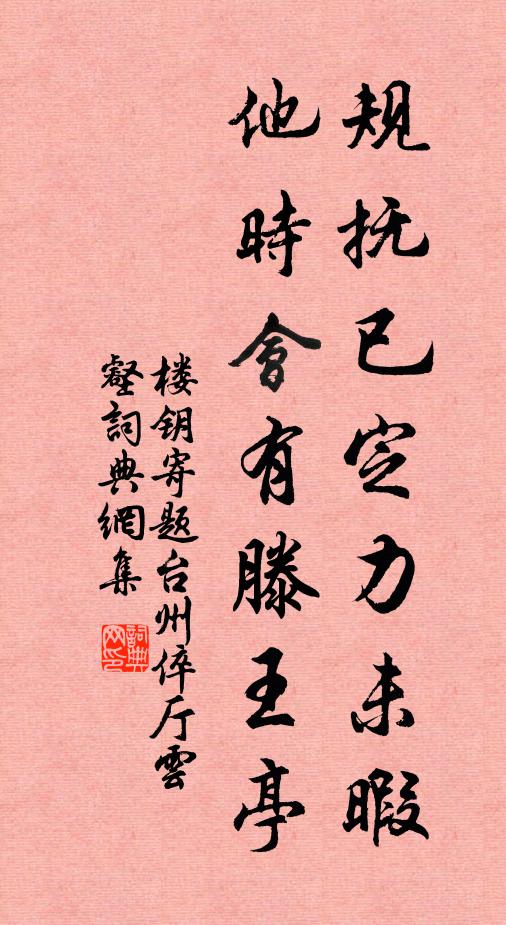 规抚已定力未暇
他時會有滕王亭
楼钥寄题台州倅厅雲
壑詞典網集
詞典网印